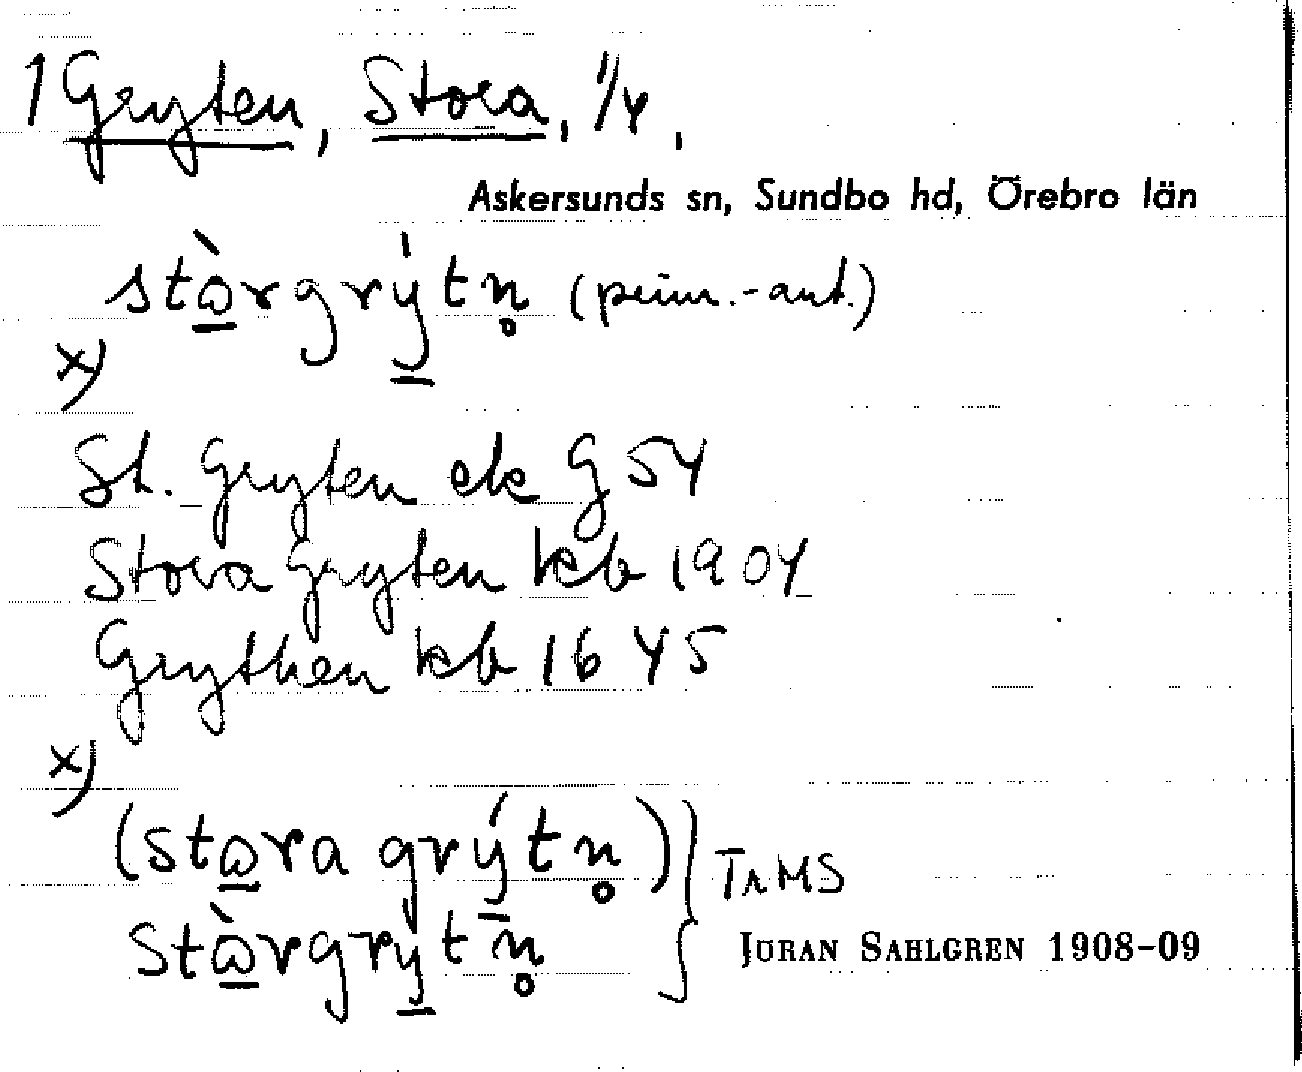 1 Gryten, Stora, 1/4,
Askersunds sn, Sundbo hd, Örebro län
stò̠rgrý̠tn̥ (prim.-ant.)
x)
St. Gryten ek G 54
Stora Gryten kb 1904
Grythen kb 1645
x)
(sto̠ra grý̠tn̥)
stò̠rgry̠tn̥
JÖRAN SAHLGREN 1908-09